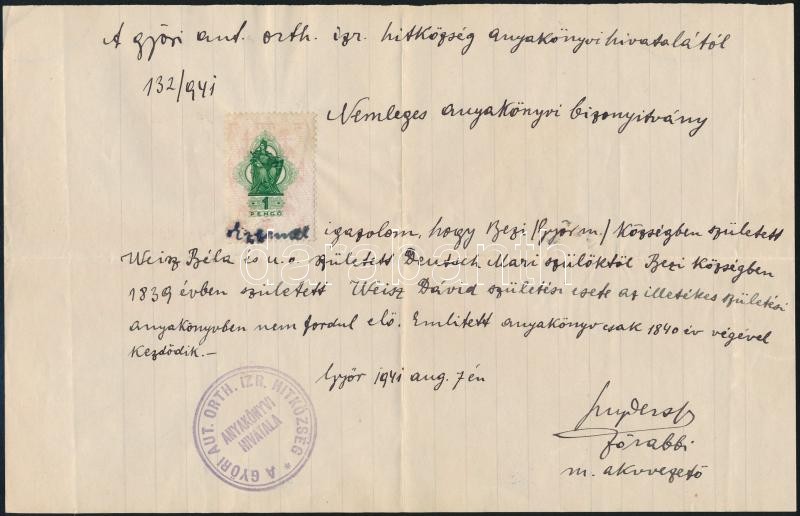 A győri aut. orth. izr. hitközség anyakönyvihivatalától
132/941
Nemleges anyakönyvi bizonyitvány
1
PENGŐ
Azzal igazolom, hogy Bezi /Győr m./ Községben született
Weisz Béla és u.o. született Deutsch Mari szülőktől Bezi Községben
1839 évben született Weisz Dávid születési esete az illetékes születési
anyakönyvben nem fordul elő. Emlitett anyakönyv csak 1840 év végével
kezdődik.—
Győr 1941 aug. 7 én
főrabbi
m. akvvezető
* A GYŐRI AUT. ORTH. IZR. HITKÖZSÉG
ANYAKÖNYVI
HIVATALA
darabanth